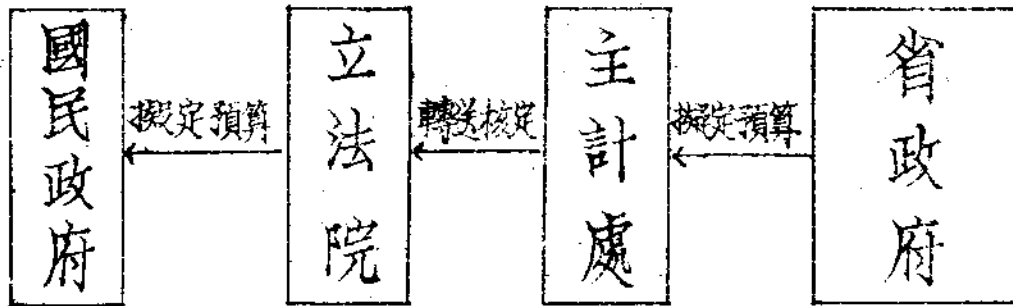 國民政府
擬定預算
立法院
轉送核定
主計處
擬定預算
省政府